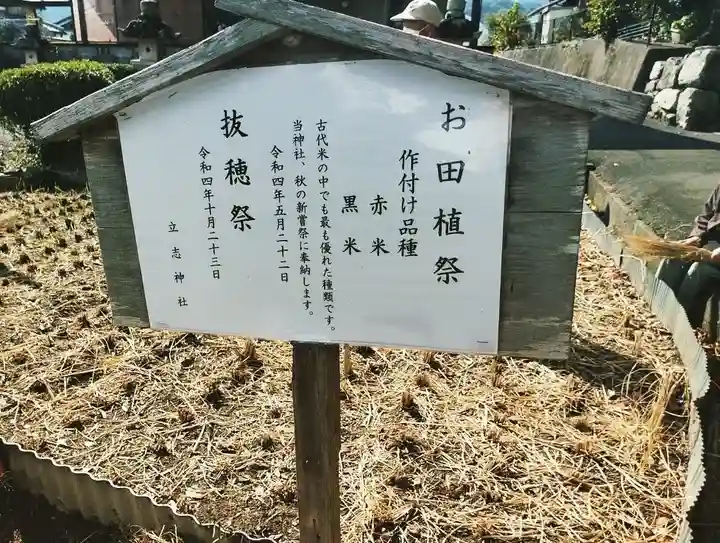 お田植祭
作付け品種
赤米
黒米
古代米の中でも最も優れた種類です。
当神社、秋の新嘗祭に奉納します。
令和四年五月二十二日
抜穂祭
令和四年十月二十三日
立志神社